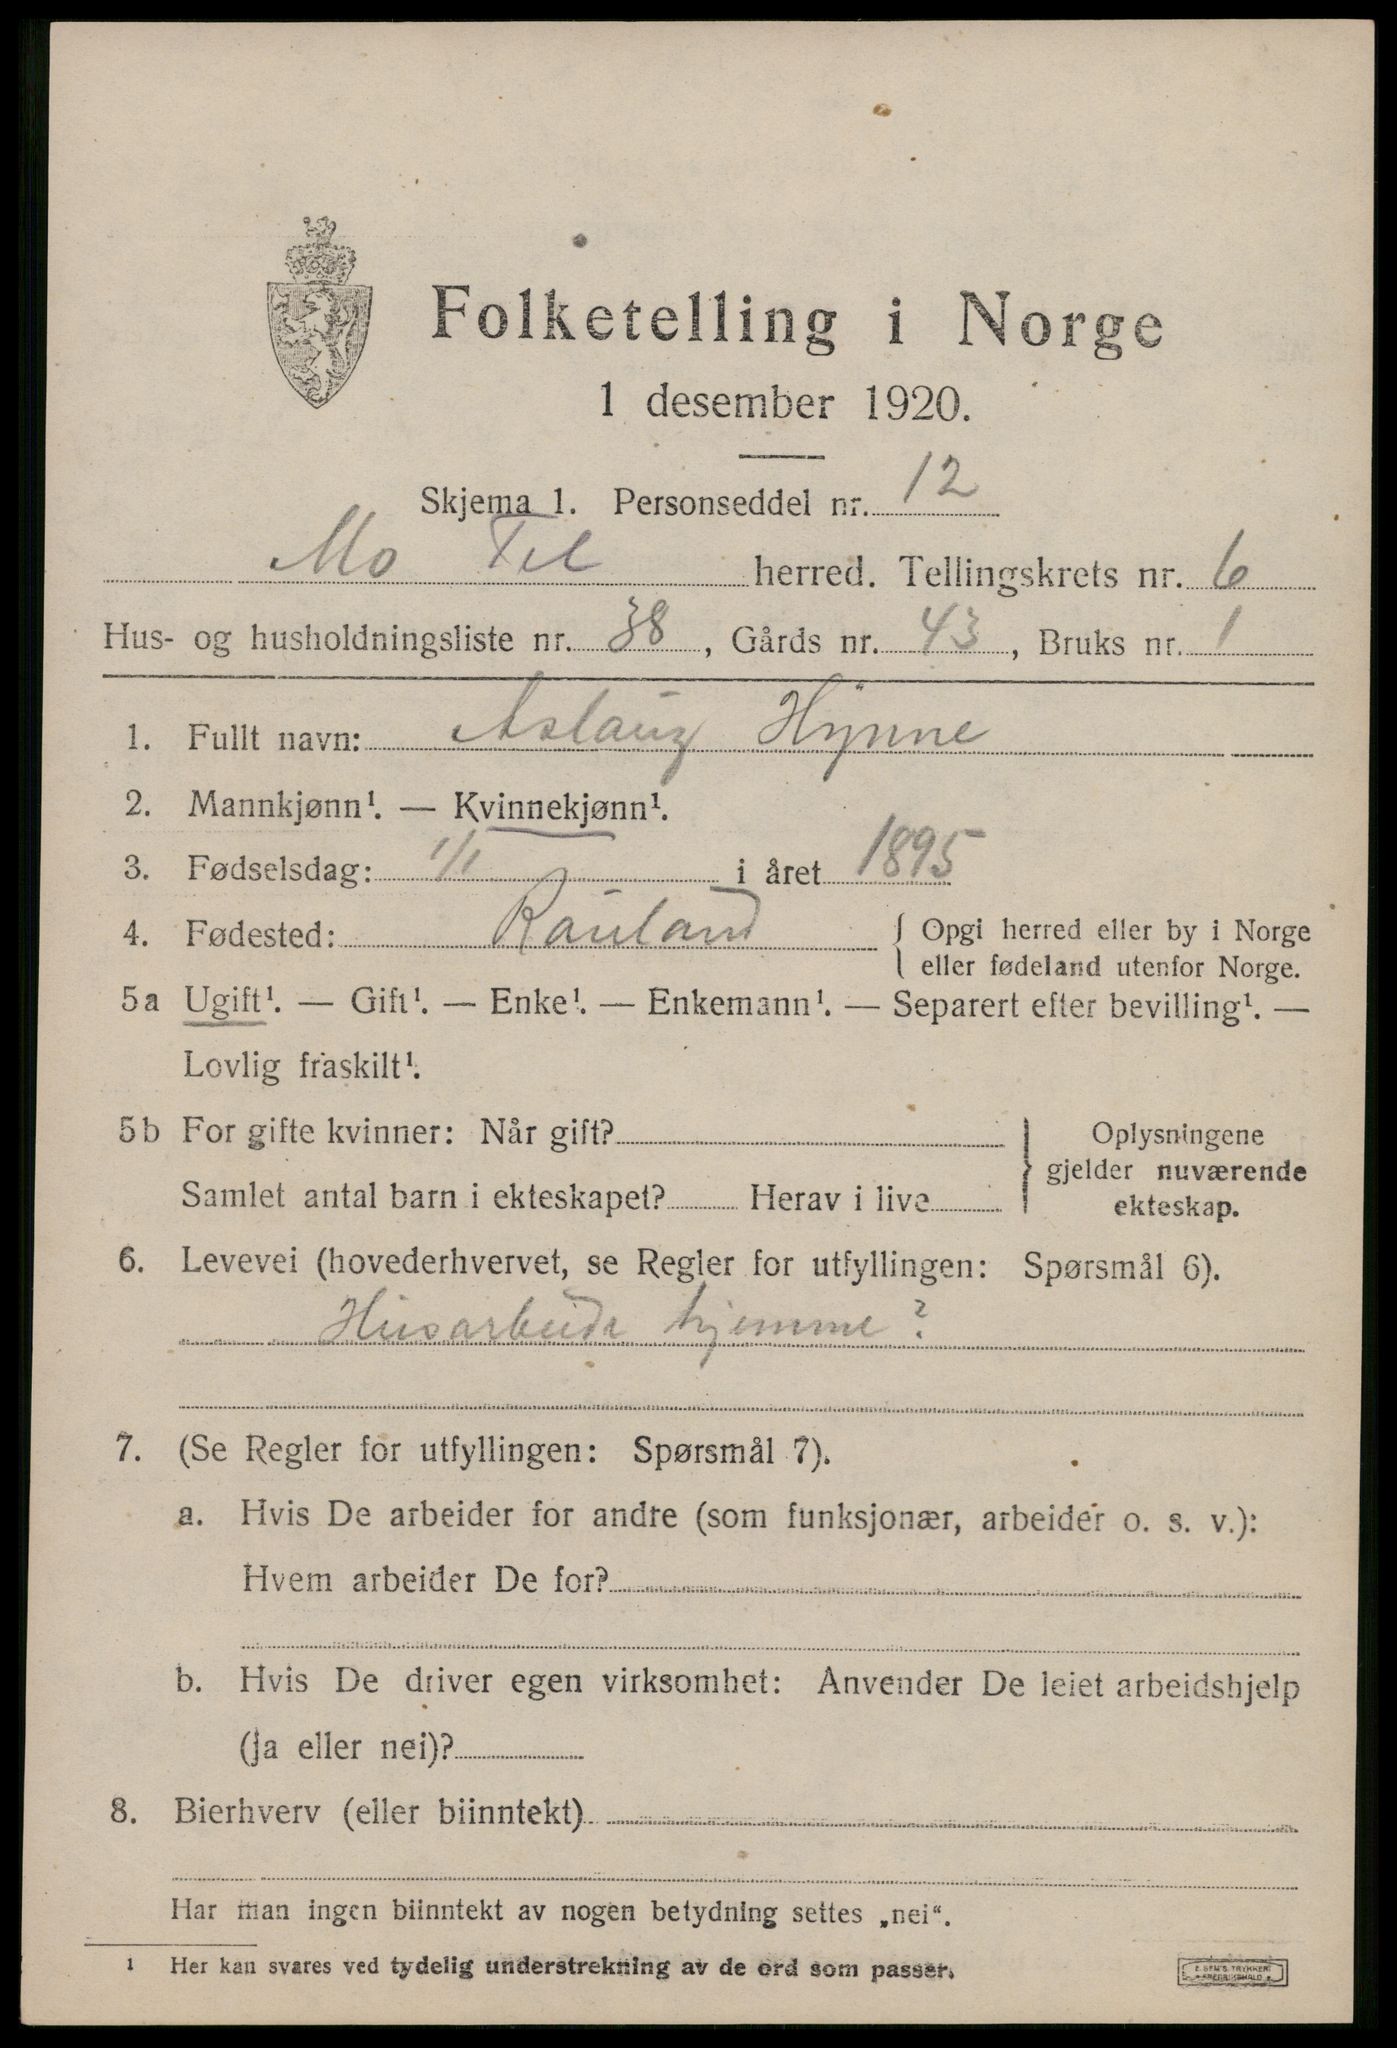 Folketelling i Norge
1 desember 1920.
Skjema 1. Personseddel nr. 12
Mo Tel herred. Tellingskrets nr. 6
Hus- og husholdningsliste nr. 38, Gårds nr. 43, Bruks nr. 1
1. Fullt navn: Aslaug Hynne
2. Mannkjønn¹. — Kvinnekjønn¹.
3. Fødselsdag: 1/1 i året 1895
4. Fødested: Rauland { Opgi herred eller by i Norge
eller fødeland utenfor Norge.
5a Ugift¹. — Gift¹. — Enke¹. — Enkemann¹. — Separert efter bevilling¹. —
Lovlig fraskilt¹.
5b For gifte kvinner: Når gift?
Samlet antal barn i ekteskapet? Herav i live
Oplysningene
gjelder nuværende
ekteskap.
6. Levevei (hovederhvervet, se Regler for utfyllingen: Spørsmål 6).
Husarbeide hjemme?
7. (Se Regler for utfyllingen: Spørsmål 7).
a. Hvis De arbeider for andre (som funksjonær, arbeider o. s. v.):
Hvem arbeider De for?
b. Hvis De driver egen virksomhet: Anvender De leiet arbeidshjelp
(ja eller nei)?
8. Bierhverv (eller biinntekt)
Har man ingen biinntekt av nogen betydning settes „nei“.
¹ Her kan svares ved tydelig understrekning av de ord som passer.
E. SEM'S TRYKKERI
FREDRIKSHALD